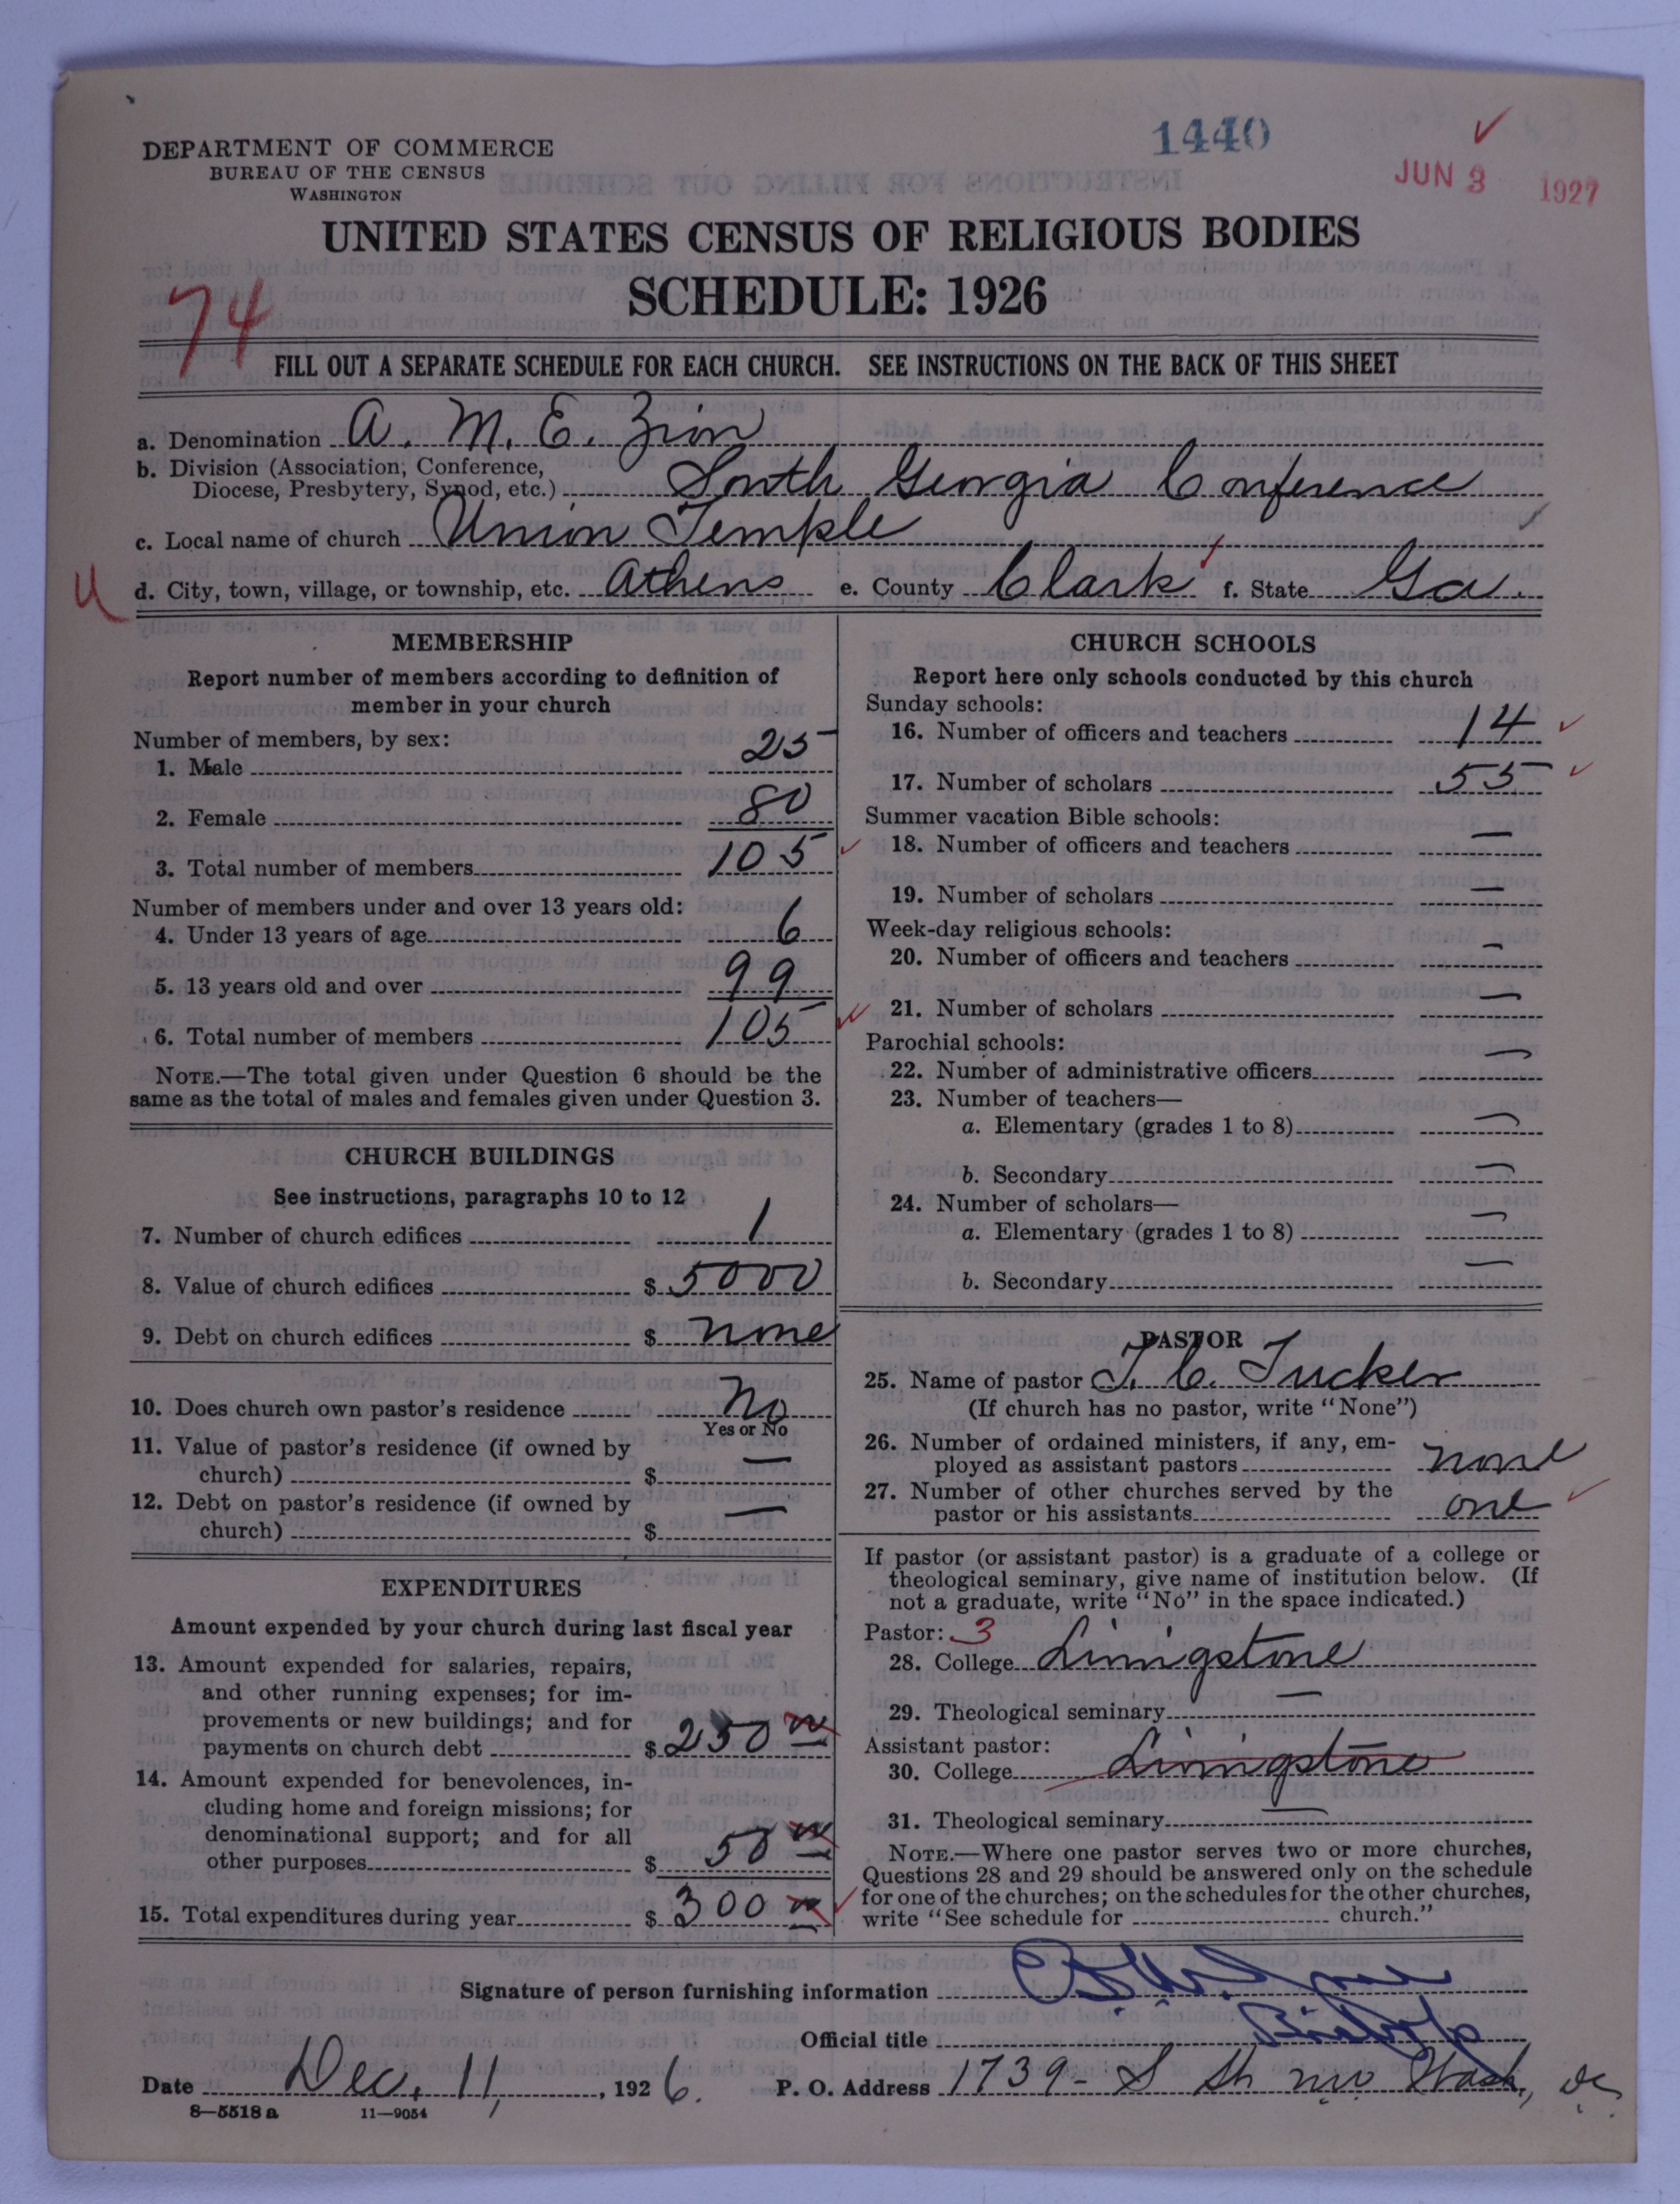 DEPARTMENT OF COMMERCE
BUREAU OF THE CENSUS
WASHINGTON
1440
JUN 3 1927
UNITED STATES CENSUS OF RELIGIOUS BODIES
SCHEDULE: 1926
74
FILL OUT A SEPARATE SCHEDULE FOR EACH CHURCH. SEE INSTRUCTIONS ON THE BACK OF THIS SHEET
a. Denomination A. M. E. Zion
b. Division (Association, Conference,
Diocese, Presbytery, Synod, etc.) South Georgia Conference
c. Local name of church Union Temple
d. City, town, village, or township, etc. Athens e. County Clark f. State Ga.
MEMBERSHIP
Report number of members according to definition of
member in your church
Number of members, by sex:
1. Male 25
2. Female 80
3. Total number of members 105
Number of members under and over 13 years old:
4. Under 13 years of age 6
5. 13 years old and over 99
6. Total number of members 105
NOTE.—The total given under Question 6 should be the
same as the total of males and females given under Question 3.
CHURCH BUILDINGS
See instructions, paragraphs 10 to 12
7. Number of church edifices 1
8. Value of church edifices $ 5000
9. Debt on church edifices $ none
10. Does church own pastor's residence No
Yes or No
11. Value of pastor's residence (if owned by
church) $ —
12. Debt on pastor's residence (if owned by
church) $ —
EXPENDITURES
Amount expended by your church during last fiscal year
13. Amount expended for salaries, repairs,
and other running expenses; for im-
provements or new buildings; and for
payments on church debt $ 250
14. Amount expended for benevolences, in-
cluding home and foreign missions; for
denominational support; and for all
other purposes $ 50
15. Total expenditures during year $ 300
CHURCH SCHOOLS
Report here only schools conducted by this church
Sunday schools:
16. Number of officers and teachers 14
17. Number of scholars 55
Summer vacation Bible schools:
18. Number of officers and teachers —
19. Number of scholars —
Week-day religious schools:
20. Number of officers and teachers —
21. Number of scholars —
Parochial schools:
22. Number of administrative officers —
23. Number of teachers—
a. Elementary (grades 1 to 8) —
b. Secondary —
24. Number of scholars—
a. Elementary (grades 1 to 8) —
b. Secondary —
PASTOR
25. Name of pastor J. C. Tucker
(If church has no pastor, write "None")
26. Number of ordained ministers, if any, em-
ployed as assistant pastors none
27. Number of other churches served by the
pastor or his assistants one
If pastor (or assistant pastor) is a graduate of a college or
theological seminary, give name of institution below. (If
not a graduate, write "No" in the space indicated.)
Pastor: 3
28. College Livingstone
29. Theological seminary —
Assistant pastor:
30. College Livingstone
31. Theological seminary —
NOTE.—Where one pastor serves two or more churches,
Questions 28 and 29 should be answered only on the schedule
for one of the churches; on the schedules for the other churches,
write "See schedule for church."
Signature of person furnishing information
Official title Bishop
Date Dec. 11, 1926. P. O. Address 1739 - S St. nw Wash, DC.
8—5518 a 11—9054